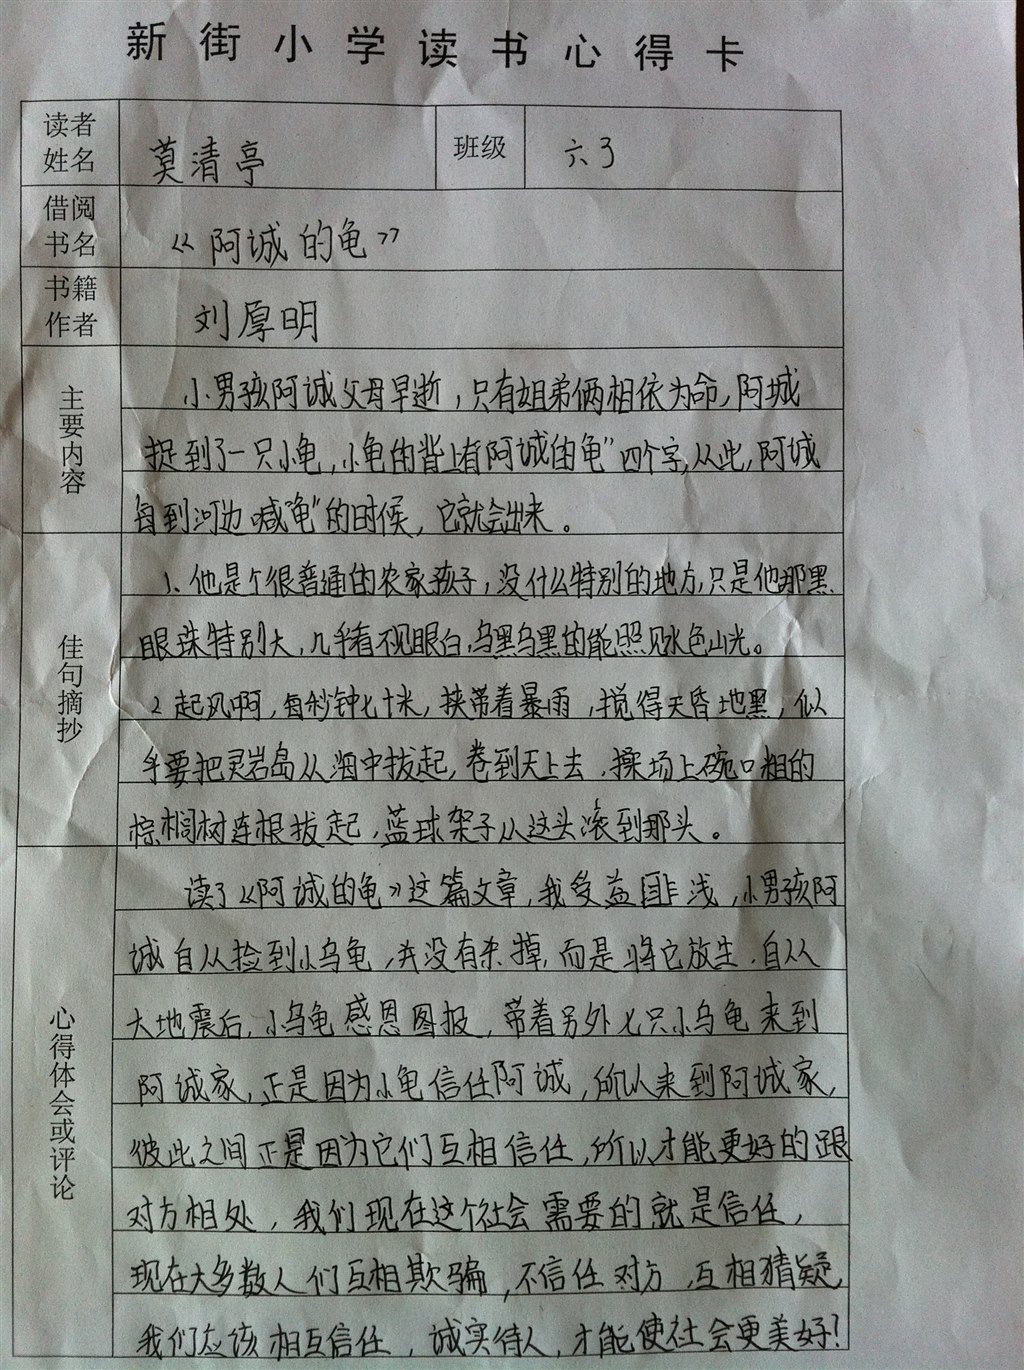 新街小学读书心得卡
读者姓名 莫清亭 班级 六3
借阅书名 《阿诚的龟》
书籍作者 刘厚明
主要内容
小男孩阿诚父母早逝，只有姐弟俩相依为命，阿城
捉到了一只小龟，小龟的背上有阿诚的龟”四个字，从此，阿城
每到河边喊“龟”的时候，它就会出来。
佳句摘抄
1、他是个很普通的农家孩子，没什么特别的地方，只是他那黑
眼珠特别大，几乎看不见眼白，乌黑乌黑的能照见水色山光。
2 起风啊，每秒钟七十米，挟带着暴雨，搅得天昏地黑，似
乎要把灵岩岛从海中拔起，卷到天上去，操场上碗口粗的
棕榈树连根拔起，蓝球架子从这头滚到那头。
心得体会或评论
读了《阿诚的龟》这篇文章，我受益匪浅，小男孩阿
诚自从捡到小乌龟，并没有杀掉，而是将它放生，自从
大地震后，小乌龟感恩图报，带着另外七只小乌龟来到
阿诚家，正是因为小龟信任阿诚，所以来到阿诚家，
彼此之间正是因为它们互相信任，所以才能更好的跟
对方相处，我们现在这个社会需要的就是信任，
现在大多数人们互相欺骗，不信任对方，互相猜疑，
我们应该相互信任，诚实待人，才能使社会更美好！